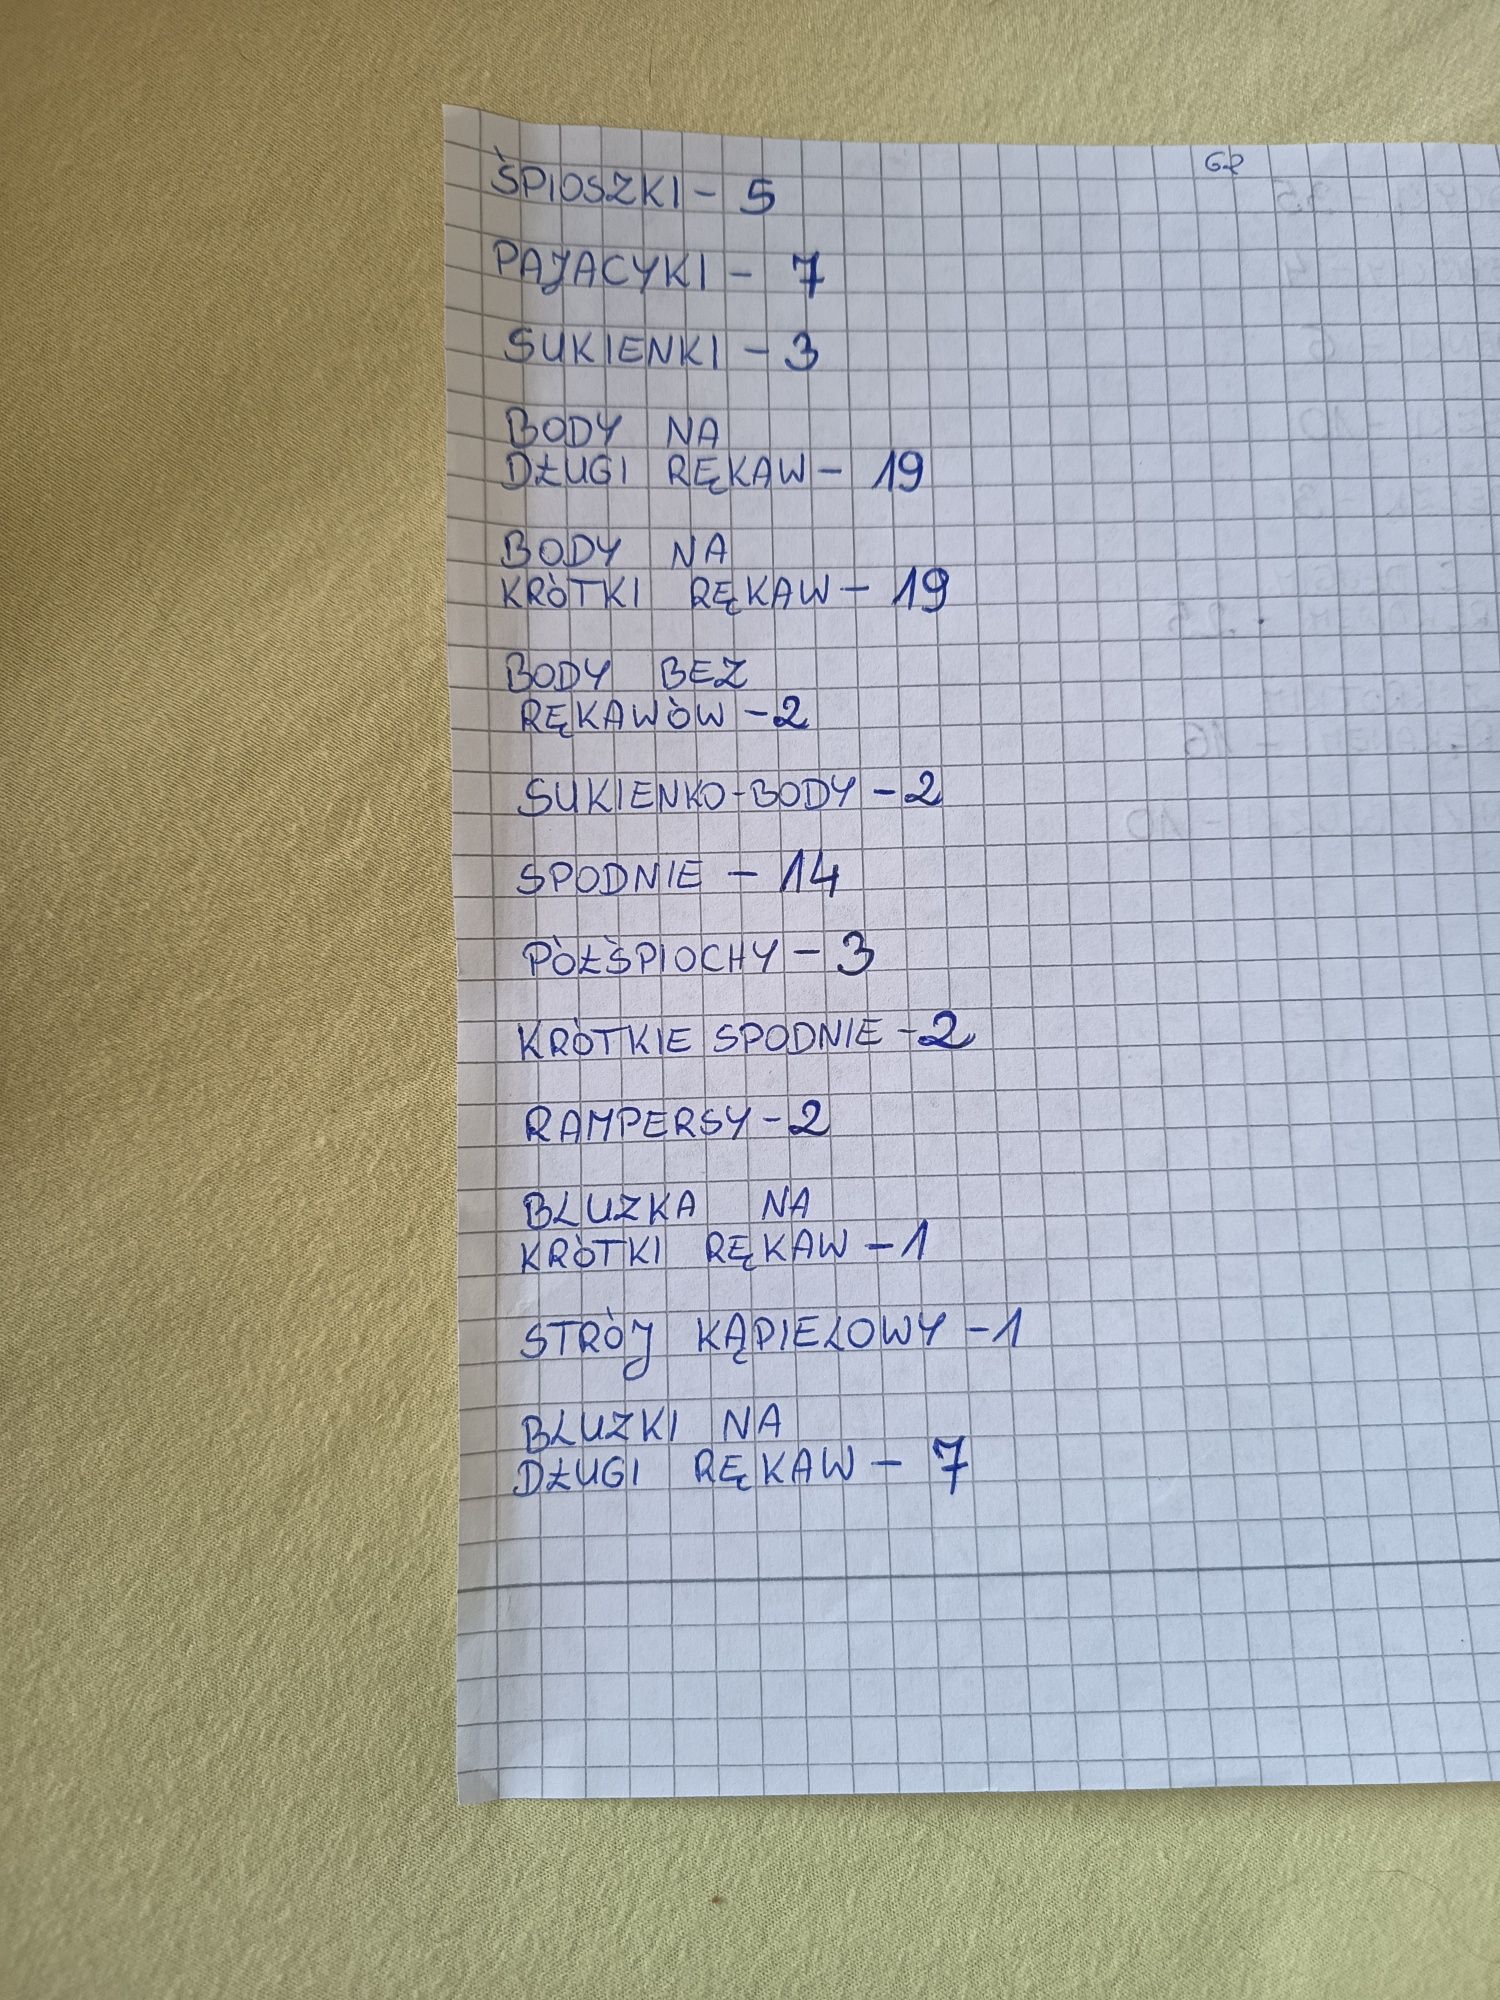 62
ŚPIOSZKI - 5
PAJACYKI - 7
SUKIENKI - 3
BODY NA
DŁUGI RĘKAW - 19
BODY NA
KRÓTKI RĘKAW - 19
BODY BEZ
RĘKAWÓW - 2
SUKIENKO-BODY - 2
SPODNIE - 14
PÓŁŚPIOCHY - 3
KRÓTKIE SPODNIE - 2
RAMPERSY - 2
BLUZKA NA
KRÓTKI RĘKAW - 1
STRÓJ KĄPIELOWY - 1
BLUZKI NA
DŁUGI RĘKAW - 7